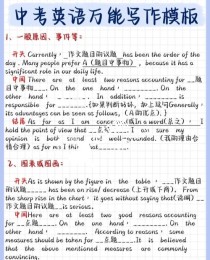 中考英语万能写作模板
1、一般原因、事件等:
开头 Currently, __作文题目的议题__ has been the order of the
day. Many people prefer A(题目中事物), because it has a
significant role in our daily life.
中间 There are at least two reasons accounting for __题
目中事物__. On the one hand, ______. On the
other hand, ______. In addition, ______ is
responsible for ______.(如果判断好坏,加上这句Generally,
its advantages can be seen as follows,(A的优点))
结尾 As far as I am concerned(或In a word总之), I
hold the point of view that __总结__. I am sure my
opinion is both sound and well-grounded.(我的理由合
情合理) as for me) I think ______
2、图表或图画:
开头 As is shown by the figure in the table, __作文题目的
议题__ has been on rise/ decrease (上升或下两). From
the sharp rise in the chart, it goes without saying that(说明)__
作文题目的议题__ is serious.
中间 Here are at least two good reasons accounting
for __主题__. On the one hand, ______. On the
other hand, ______. According to reasons, some
measures should be taken for __主题__. It is believed
that the above mentioned measures are commonly
convincing.